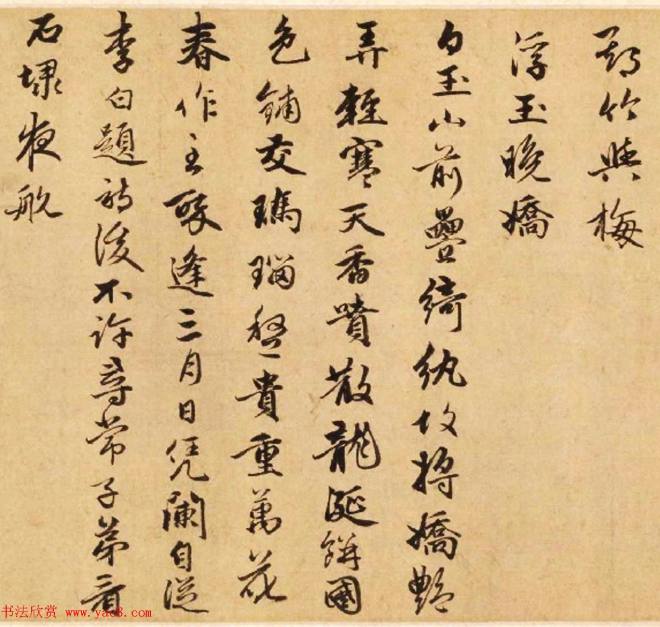 竹與梅
浮玉晚嬌
白玉山前疊綺紈故將嬌艷
弄輕寒天香噴散龍涎餅國
色鋪交瑪瑙盤貴重萬花
春作主醉逢三月日凭闌自從
李白題詩後不許尋常子弟看
石埭夜航
书法欣赏 www.yac8.com